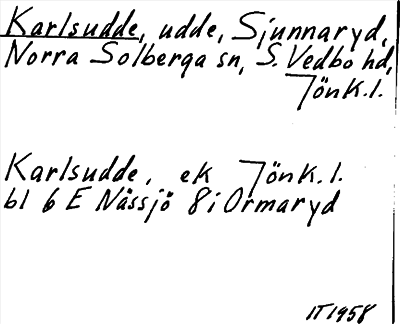 Karlsudde, udde, Sjunnaryd,
Norra Solberga sn, S. Vedbo hd,
Jönk. l.
Karlsudde, ek Jönk. l.
bl 6 E Nässjö 8i Ormaryd
IT 1958